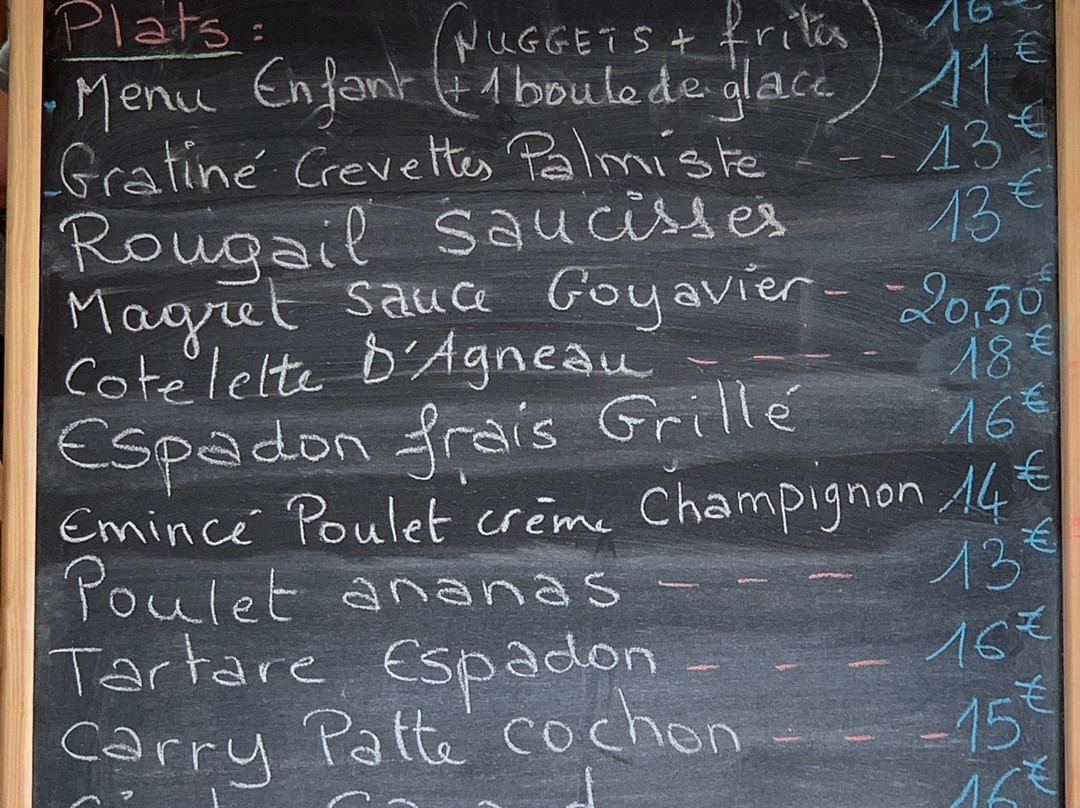 Plats : 16 €
Menu Enfant (NUGGETS + frites + 1 boule de glace) 11 €
Gratiné Crevettes Palmiste - - - 13 €
Rougail saucisses 13 €
Magret sauce Goyavier - - 20,50 €
Cotelette D'Agneau - - - - 18 €
Espadon frais Grillé 16 €
Emincé Poulet crème Champignon 14 €
Poulet ananas - - - 13 €
Tartare Espadon - - - 16 €
Carry Patte cochon - - - - 15 €
16 €